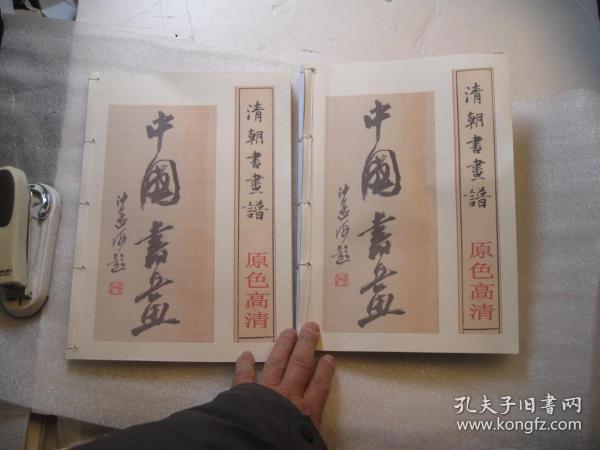 清朝書畫譜
原色高清
中國書畫
沙孟海題
清朝書畫譜
原色高清
中國書畫
沙孟海題
孔夫子旧书网
www.kongfz.com